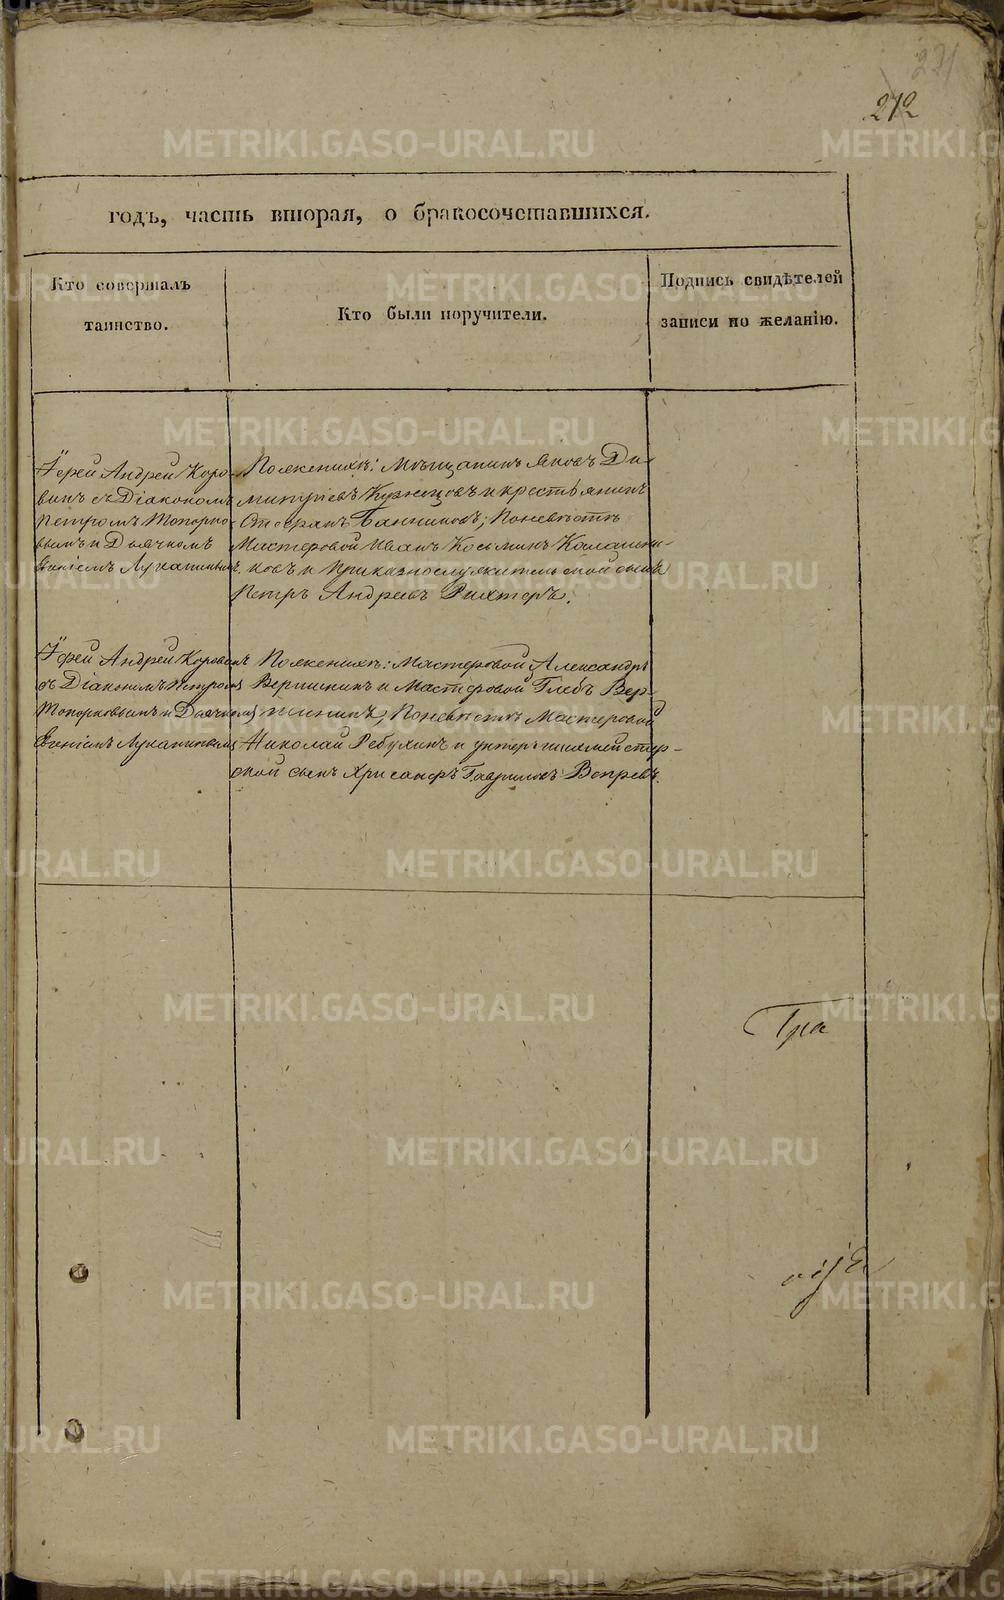 271
272
годъ, часть вторая, о бракосочетавшихся.
Кто совершалъ
таинство.
Кто были поручители.
Подпись свидѣтелей
записи по желанію.
Іерей Андрей Коро-
винъ съ Діакономъ
Петромъ Топорко-
вымъ и Дьячкомъ
Евгеніемъ Лукани
По женихѣ: Мѣщанинъ Яковъ Ди-
митріевъ Кузнецовъ и крестьянинъ
Банниковъ; По невѣстѣ
Мастеровой Иванъ Косьминъ Калашни-
ковъ и Приказнослужительской сынъ
Петръ Андреевъ Рихтеръ.
Іерей Андрей Коровинъ
съ Діакономъ Петромъ
Топорковымъ и Дьячкомъ
По женихѣ: Мастеровой Александръ
Вершининъ и Мастеровой Глебъ Вер-
шининъ; По невѣстѣ Мастеровой
Николай Ребухинъ и унтершихтмейстер-
ской сынъ Хрисанфъ Гавриловъ Вопревъ.
METRIKI.GASO-URAL.RU